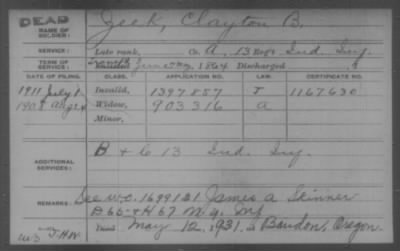 DEAD
NAME OF SOLDIER: Zeek, Clayton B.
SERVICE: Late rank, Co. A, 13 Reg't Ind. Inf.
TERM OF SERVICE: Enlisted 1864 Discharged
DATE OF FILING. CLASS. APPLICATION NO. LAW. CERTIFICATE NO.
1911 July 1 Invalid, 1397857 J 1167630
Widow, 903316 a
Minor,
ADDITIONAL SERVICES: B + C 13 Ind. Inf.
REMARKS: See W.C. 1699121 James A Skinner
Died May 12, 1931, at Bandon, Oregon.